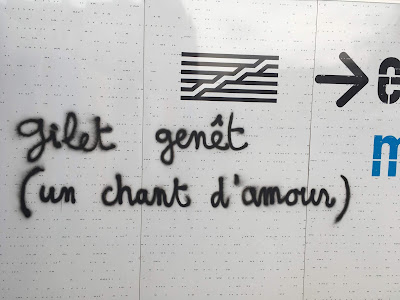 gilet genêt
(un chant d'amour)